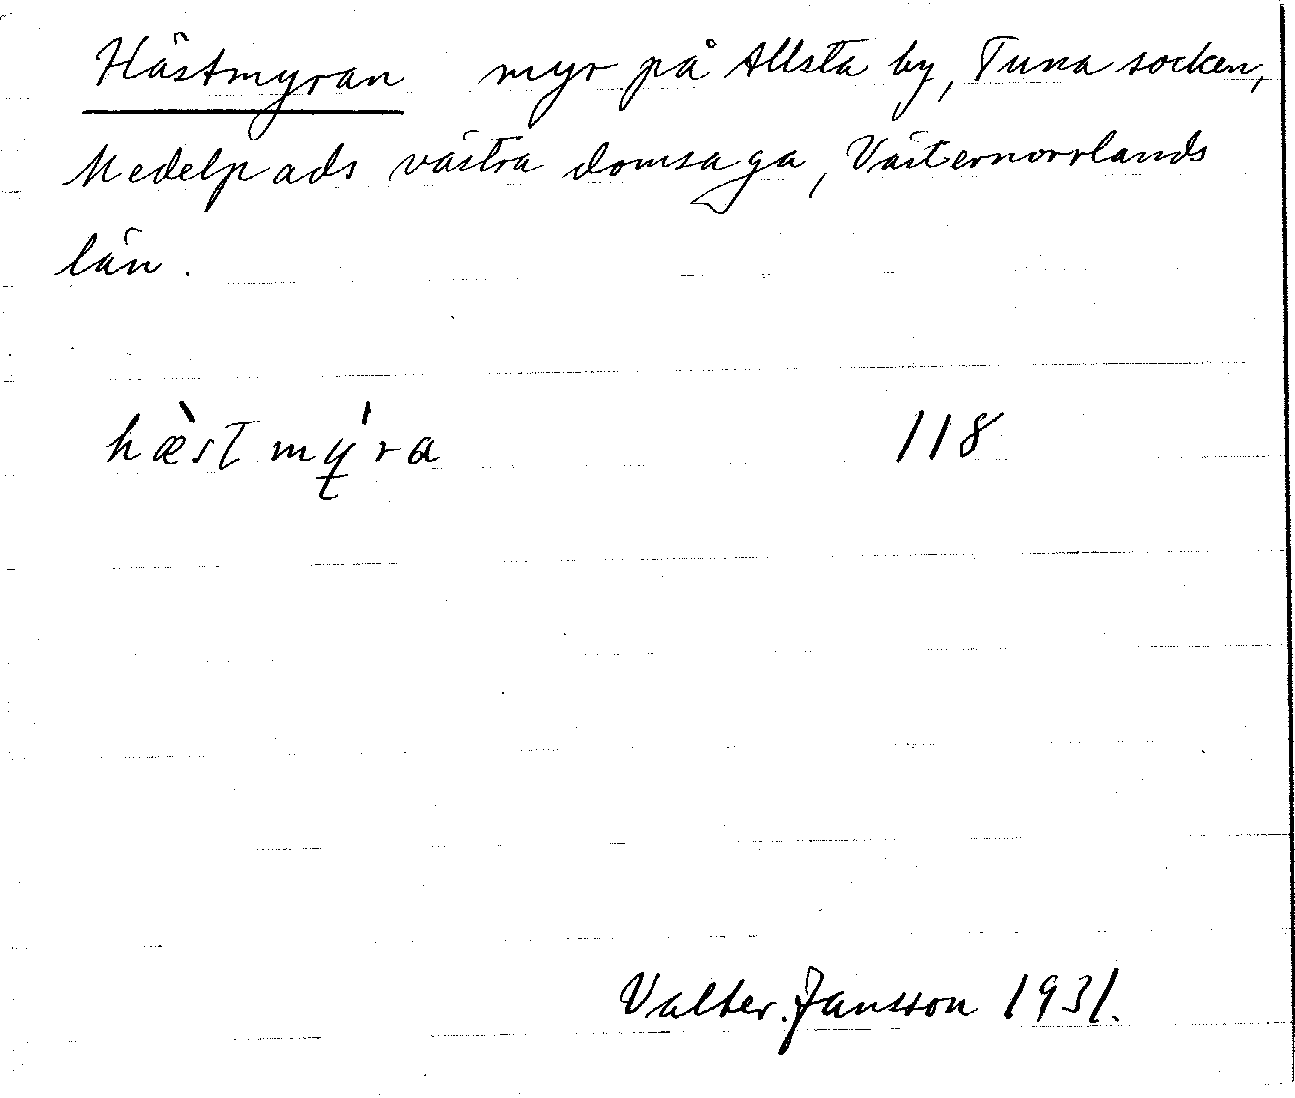 Hästmyran myr på Allsta by, Tuna socken,
Medelpads västra domsaga, Västernorrlands
län.
hæ̀stmý̢ra 118
Valter Jansson 1931.